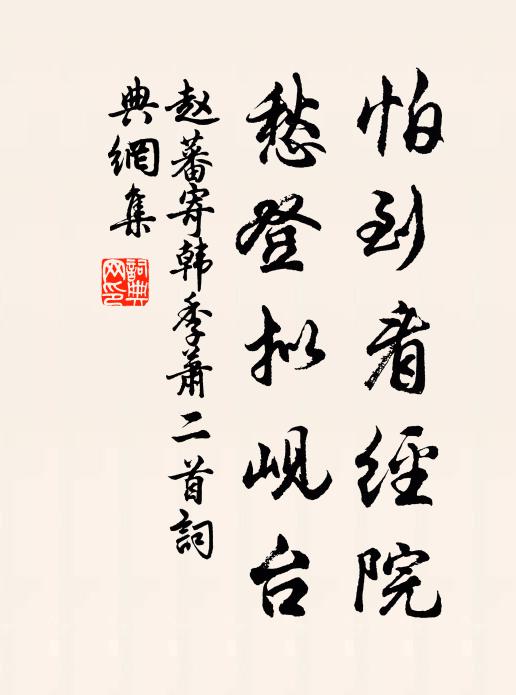 怕到看經院
愁登拟峴台
赵蕃寄韩季蕭二首詞
典網集
詞典
网印